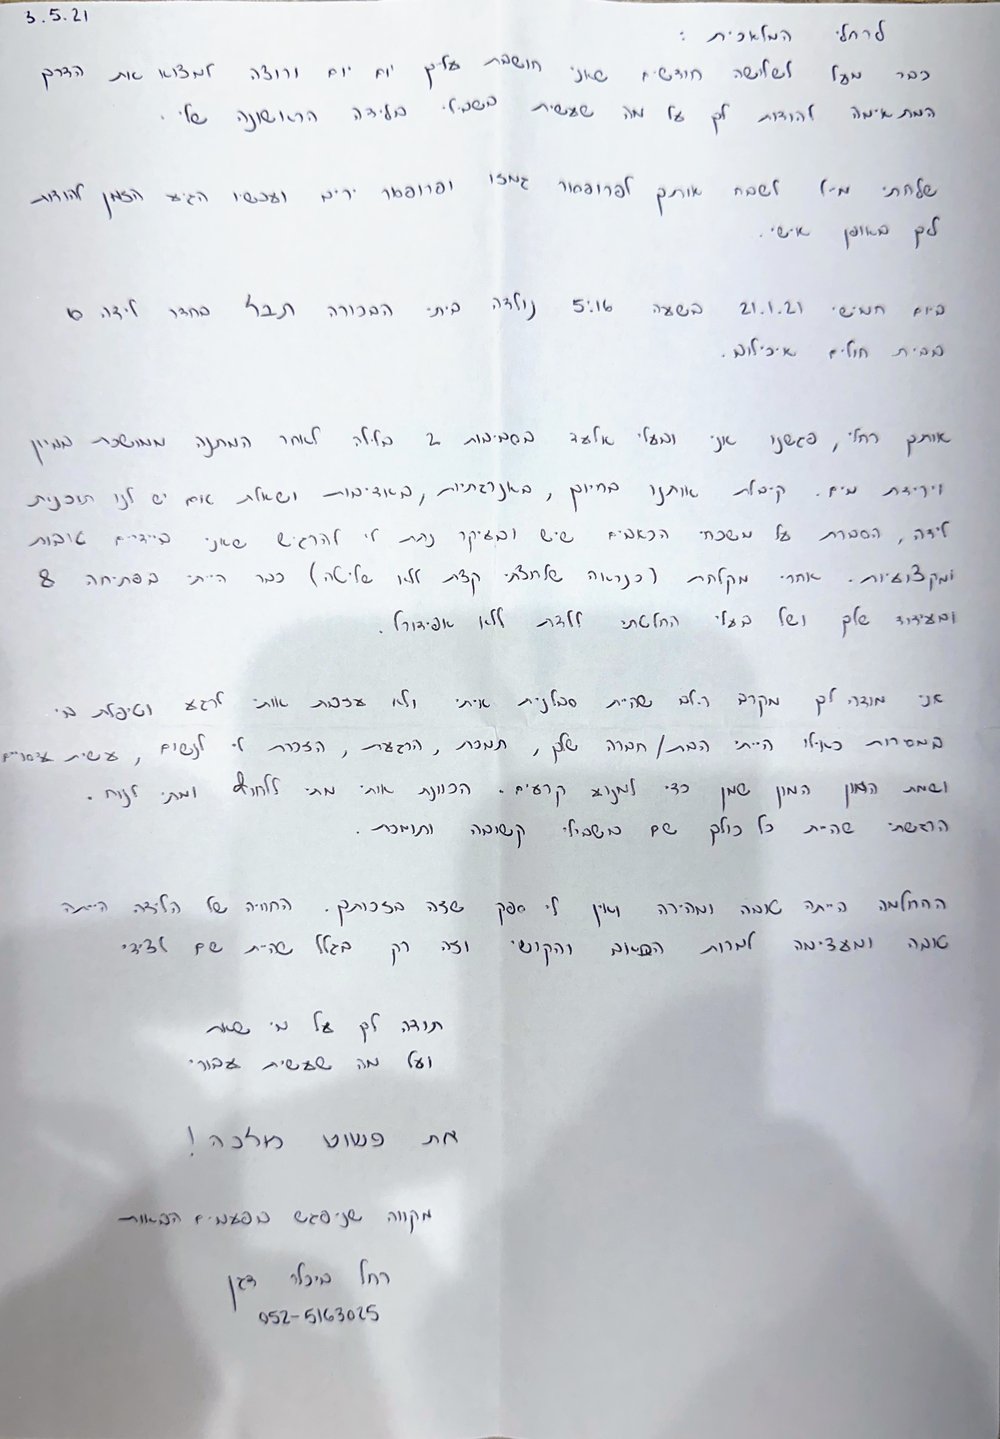 3.5.21
לרחלי המלאכית :
כבר מעל לשלושה חודשים שאני חושבת עליך יום יום ורוצה למצוא את הדרך
המתאימה להודות לך על מה שעשית בשבילי בלידה הראשונה שלי .
שלחתי מייל לשבח אותך לפרופסור גמזו ופרופסור יריב ועכשיו הגיע הזמן להודות
לך באופן אישי .
ביום חמישי 21.1.21 בשעה 5:16 נולדה ביתי הבכורה תבל בחדר לידה 6
בבית חולים איכילוב .
אותך רחלי , פגשנו אני ובעלי אלעד בסביבות 2 בלילה לאחר המתנה ממושכת במיון
וירידת מים . קיבלת אותנו בחיוך , באנרגתיות , באדיבות ושאלת אם יש לנו תוכנית
לידה , הסברת על משככי הכאבים שיש ובעיקר נתת לי להרגיש שאני בידיים טובות
ומקצועיות . אחרי מקלחת (כנראה שלחצתי קצת ללא שליטה) כבר הייתי בפתיחה 8
ובעידוד שלך ושל בעלי החלטתי ללדת ללא אפידורל .
אני מודה לך מקרב לב שהיית סבלנית איתי ולא עזבת אותי לרגע וטיפלת בי
במסירות כאילו הייתי הבת / חברה שלך , תמכת , הרגעת , הזכרת לי לנשום , עשית עיסויים
ושמת המון המון שמן כדי למנוע קרעים . הכוונת אותי מתי ללחוץ ומתי לנוח .
הרגשתי שהיית כל כולך שם בשבילי קשובה ותומכת .
ההחלמה הייתה טובה ומהירה ואין לי ספק שזה בזכותך . החוויה של הלידה הייתה
טובה ומעצימה למרות הכאב והקושי וזה רק בגלל שהיית שם לצידי
תודה לך על מי שאת
ועל מה שעשית עבורי
את פשוט מלכה !
מקווה שניפגש בפעמים הבאות
רחל ביכלר דגן
052-5163025